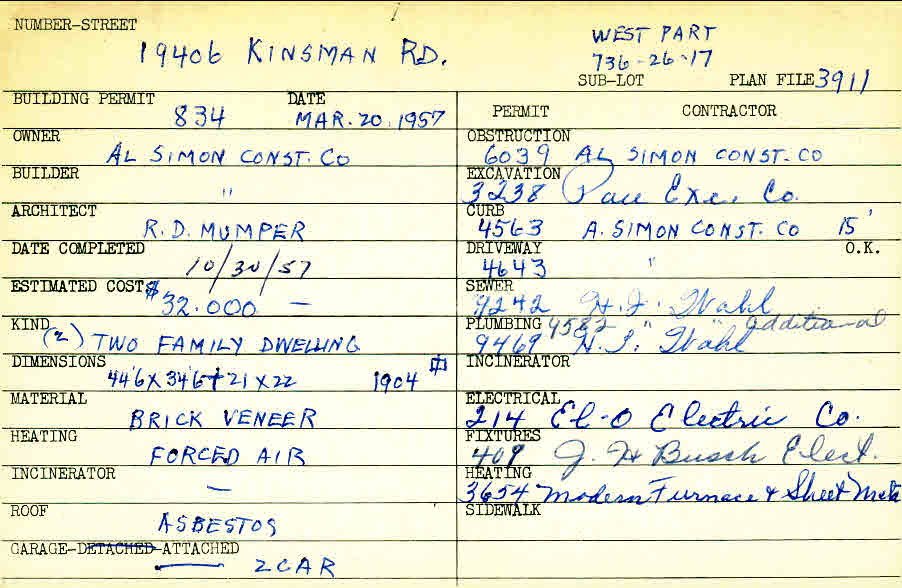 NUMBER-STREET
19406 KINSMAN RD.
WEST PART
736-26-17
SUB-LOT PLAN FILE 3911
BUILDING PERMIT 834 DATE MAR. 20. 1957
PERMIT CONTRACTOR
OWNER AL SIMON CONST. CO
OBSTRUCTION 6039 AL SIMON CONST. CO
BUILDER "
EXCAVATION 3238 Exc. Co.
ARCHITECT R.D. MUMPER
CURB 4563 A. SIMON CONST. CO 15'
DATE COMPLETED 10/30/57
DRIVEWAY 4643 " O.K.
ESTIMATED COST $32.000 —
SEWER 9242 H.J. Wahl
KIND (2) TWO FAMILY DWELLING
PLUMBING 9582 " " additional
9469 H.J. Wahl
DIMENSIONS 44'6 X 34'6 + 21 X 22 1904
INCINERATOR
MATERIAL BRICK VENEER
ELECTRICAL 214 El-O Electric Co.
HEATING FORCED AIR
FIXTURES 409 J. H Busch Elect.
INCINERATOR —
HEATING 3654 Modern Furnace & Sheet Meta
ROOF ASBESTOS
SIDEWALK
GARAGE-DETACHED-ATTACHED
2 CAR